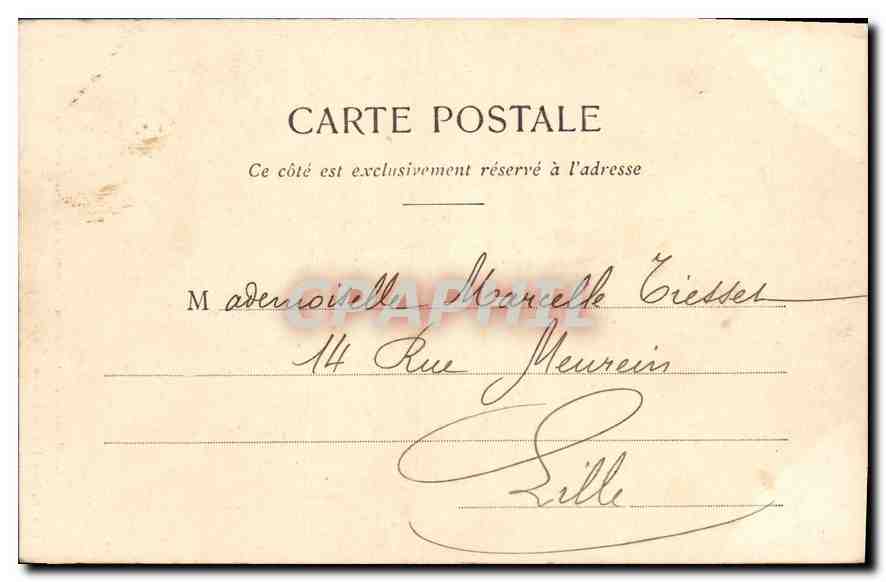 CARTE POSTALE
Ce côté est exclusivement réservé à l'adresse
Mademoiselle Marcelle Tiesset
14 Rue Meurein
Lille
CPAPHIL